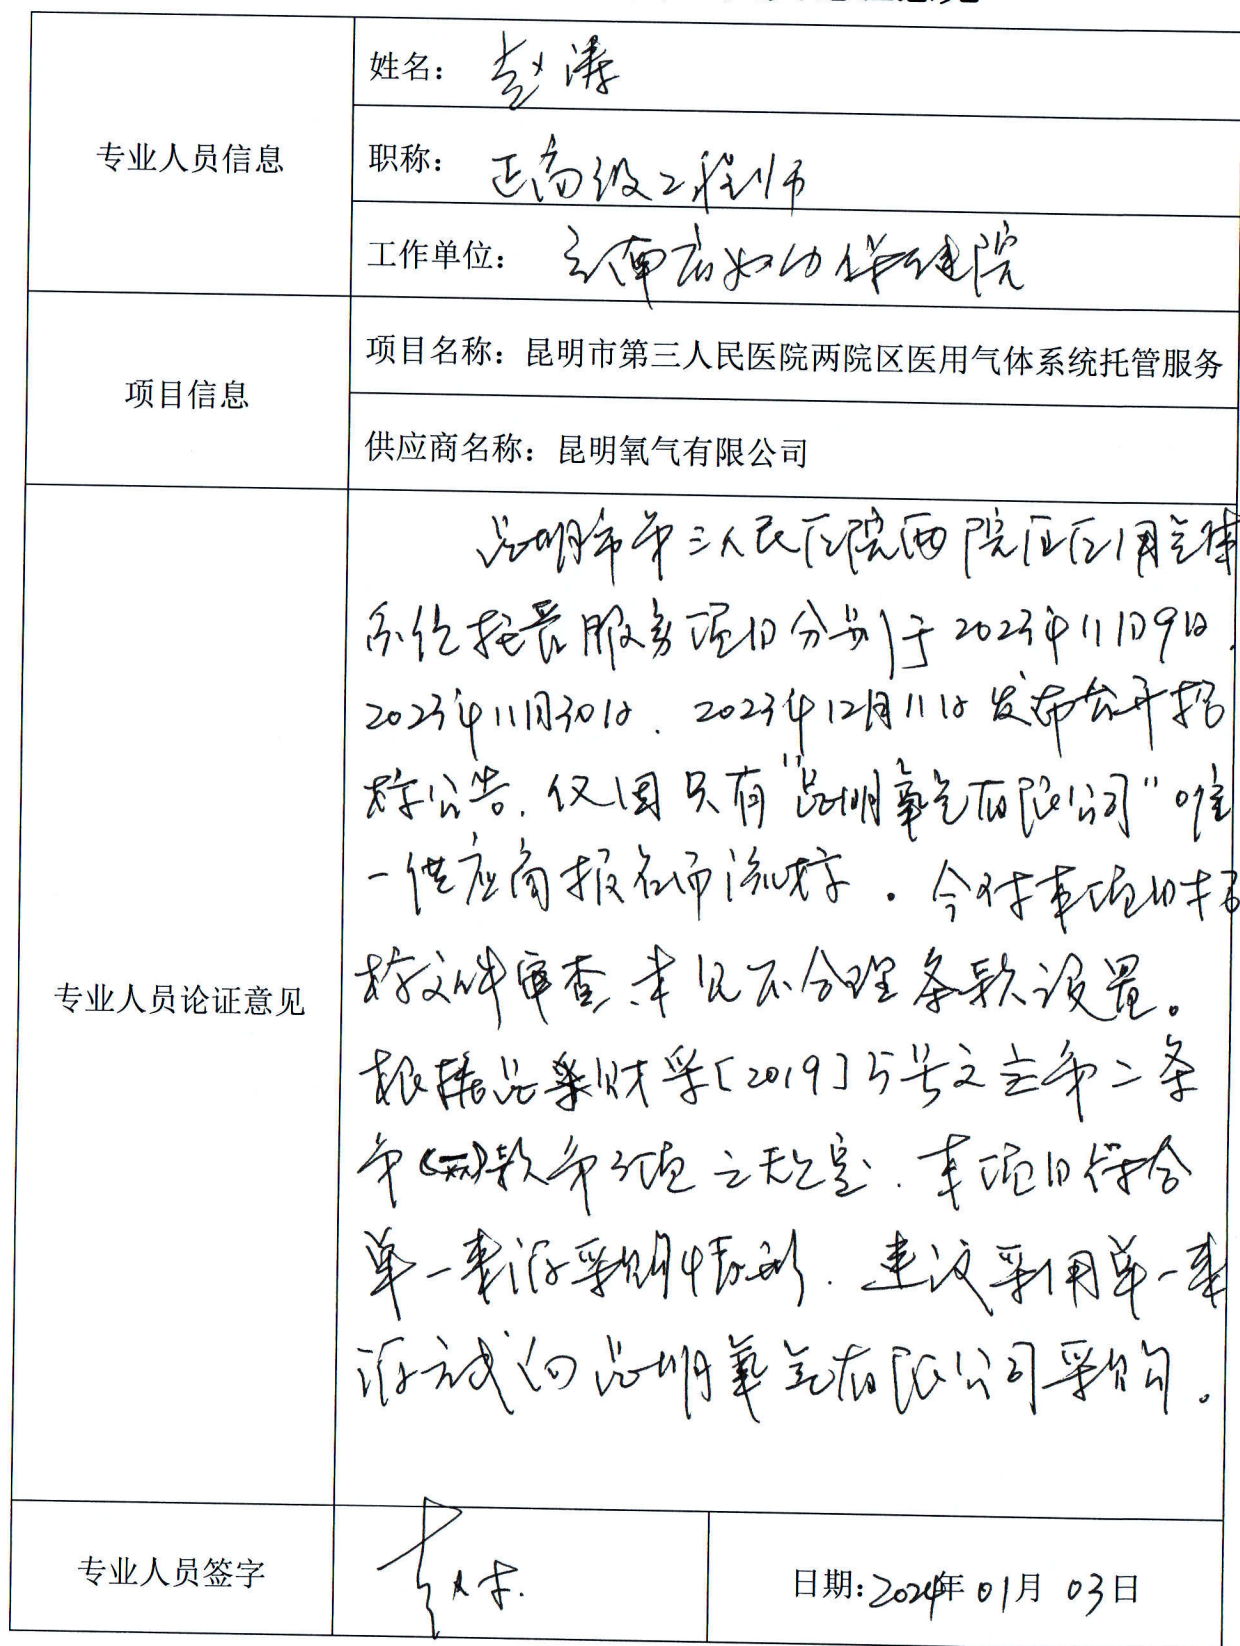 专业人员信息
姓名：赵涛
职称：正高级工程师
工作单位：云南省妇幼保健院
项目信息
项目名称：昆明市第三人民医院两院区医用气体系统托管服务
供应商名称：昆明氧气有限公司
专业人员论证意见
昆明市第三人民医院两院区医用气体
系统托管服务项目分别于2023年11月9日、
2023年11月30日、2023年12月11日发布公开招
标公告，仅因只有“昆明氧气有限公司”唯
一供应商报名而流标。今对本项目招
标文件审查，未见不合理条款设置。
根据昆财采[2019]5号文 第二条
第 款第 项之规定，本项目符合
单一来源采购情形，建议采用单一来
源方式向昆明氧气有限公司采购。
专业人员签字
赵涛
日期：2024年01月03日